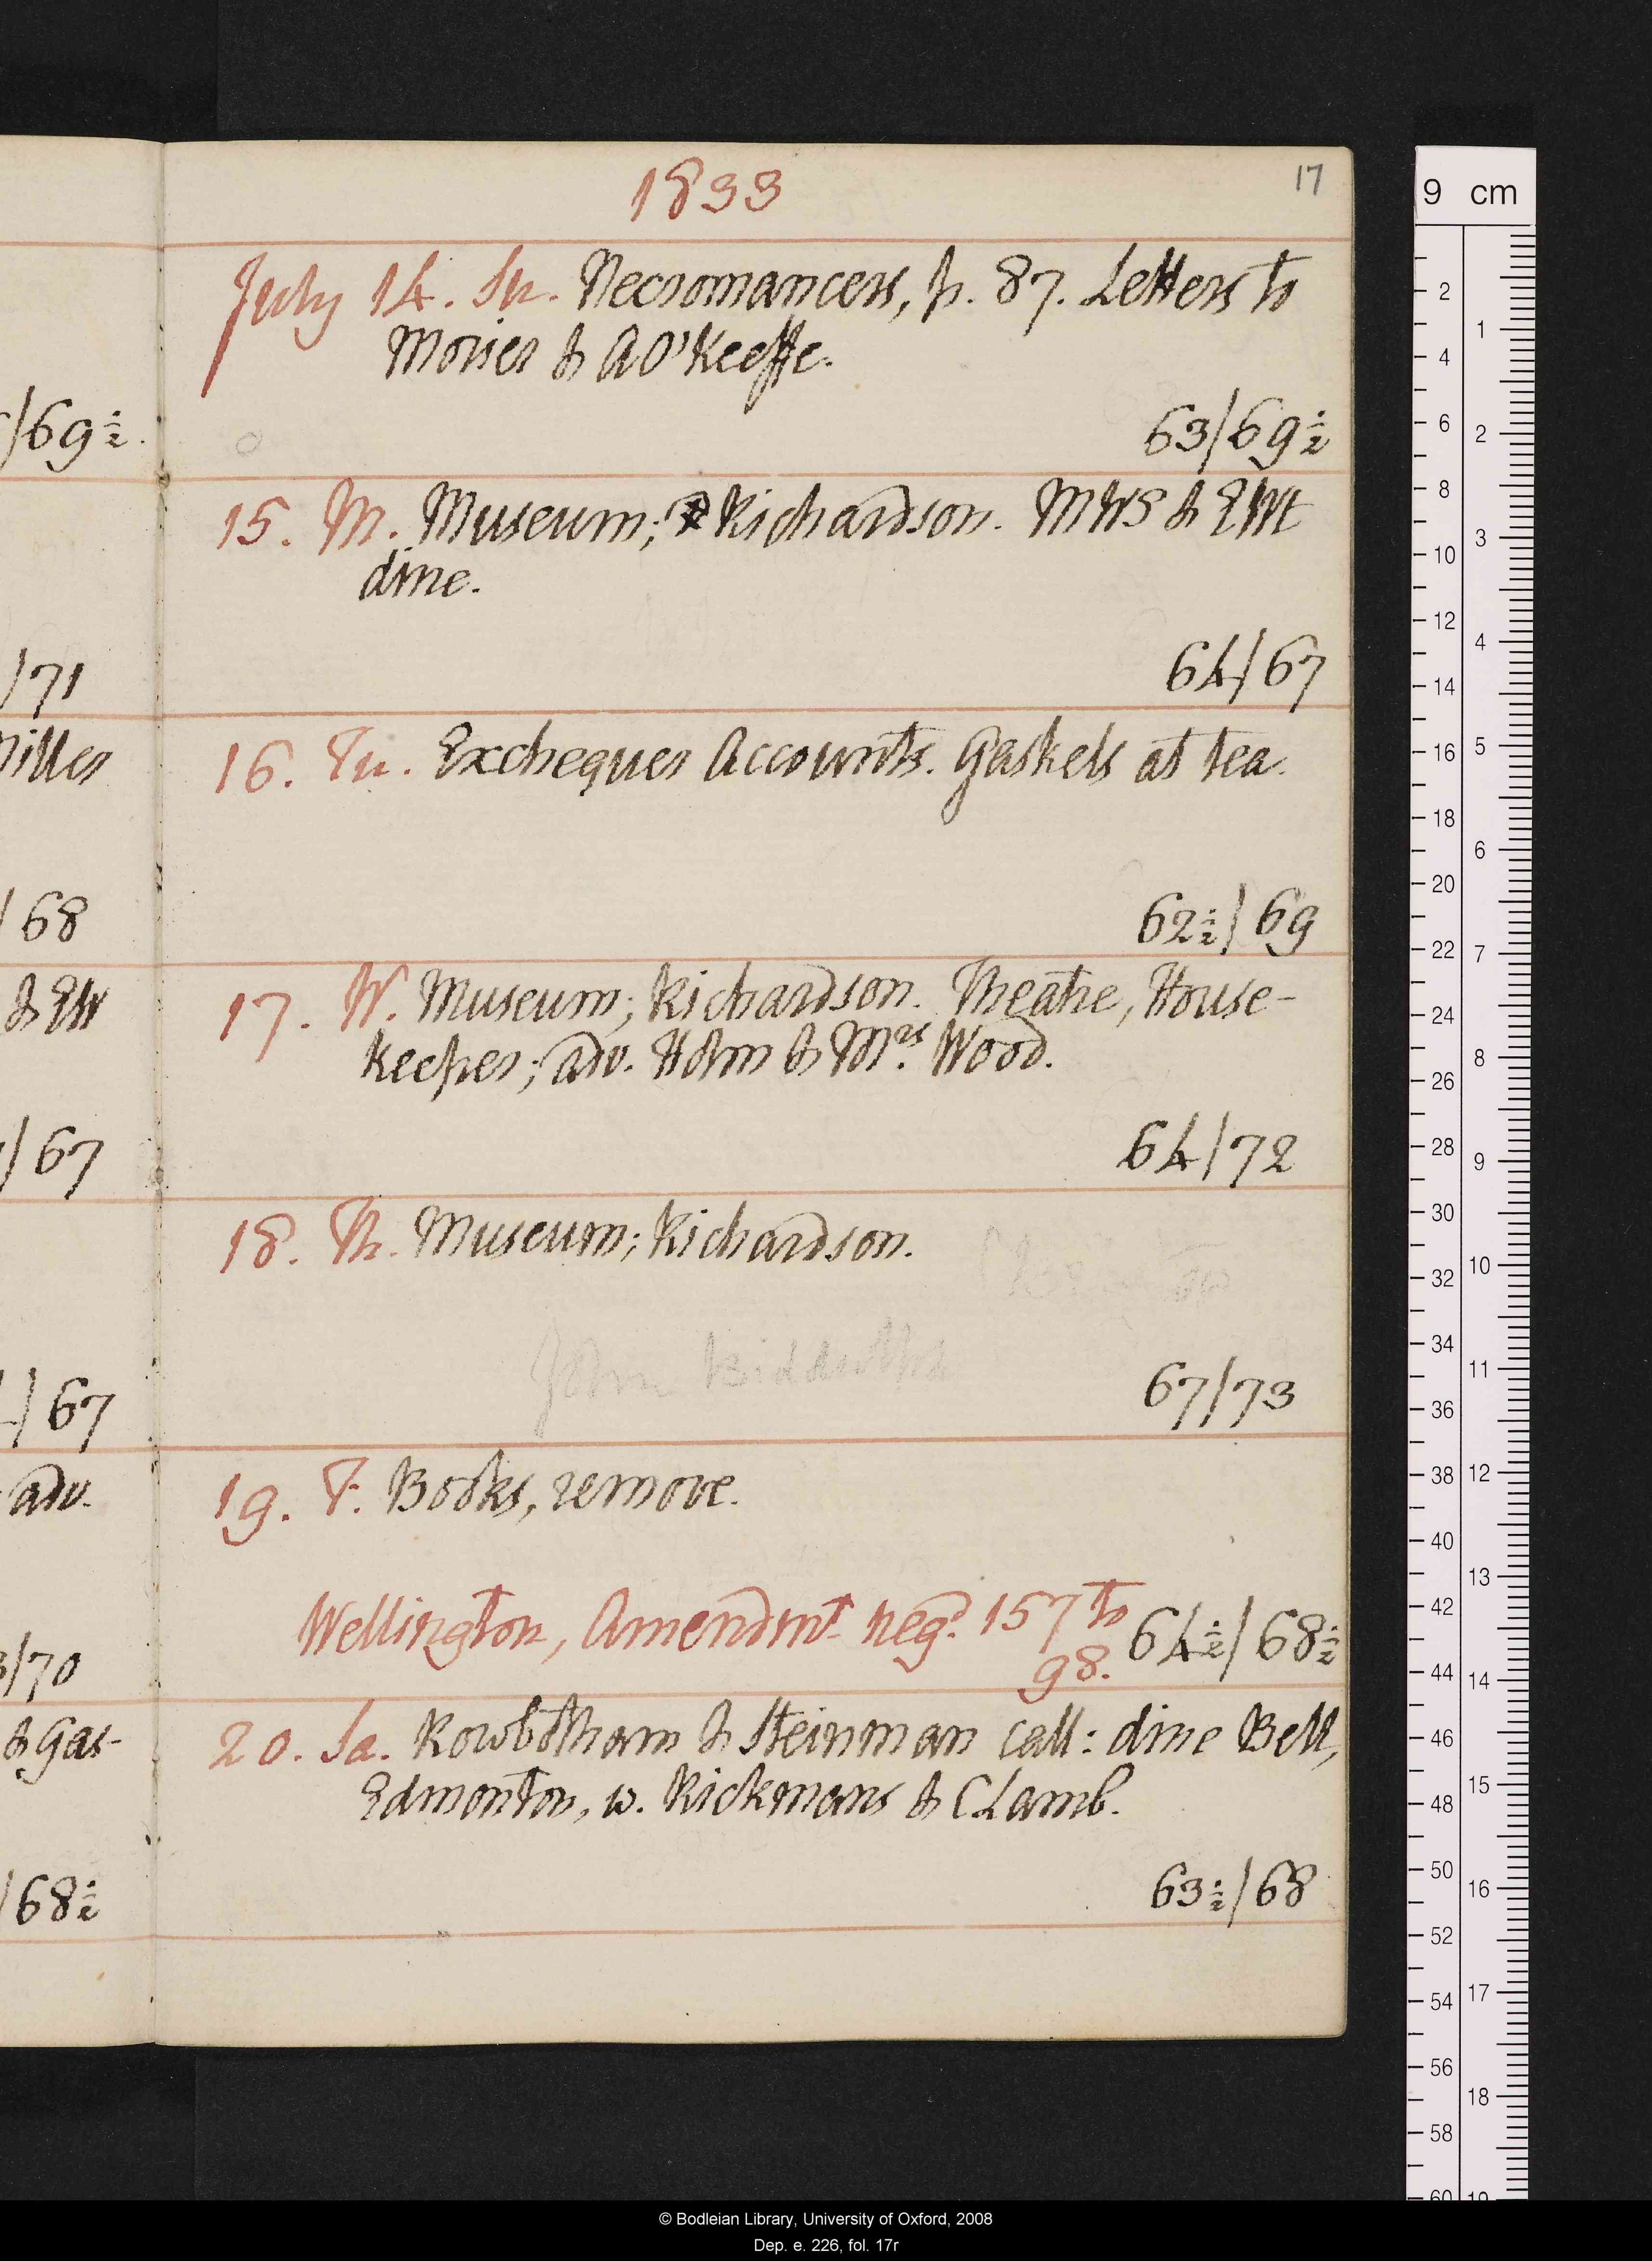 1833
17
July 14. Su. Necromancers, p. 87. Letters to
Morier & A O'Keeffe.
/69½.
63/69½
15. M. Museum; Richardson. MWS & EWt
dine.
/71
64/67
iller
16. Tu. Exchequer Accounts. Gaskels at tea.
/68
62½/69
& EW
17. W. Museum; Richardson. Theatre, House-
keeper; adv. Hdm & Mrs. Wood.
/67
64/72
18. Th. Museum; Richardson.
John
/67
67/73
adv.
19. F. Books, remove.
Wellington, Amendmt. negd. 157 to
98.
64½/68½
3/70
& Gas-
20. Sa. Rowbotham & Steinman call: dine Bell,
Edmonton, w. Rickmans & C Lamb.
/68½
63½/68
9 cm
2
4
6
8
10
12
14
16
18
20
22
24
26
28
30
32
34
36
38
40
42
44
46
48
50
52
54
56
58
60
1
2
3
4
5
6
7
8
9
10
11
12
13
14
15
16
17
18
19
© Bodleian Library, University of Oxford, 2008
Dep. e. 226, fol. 17r